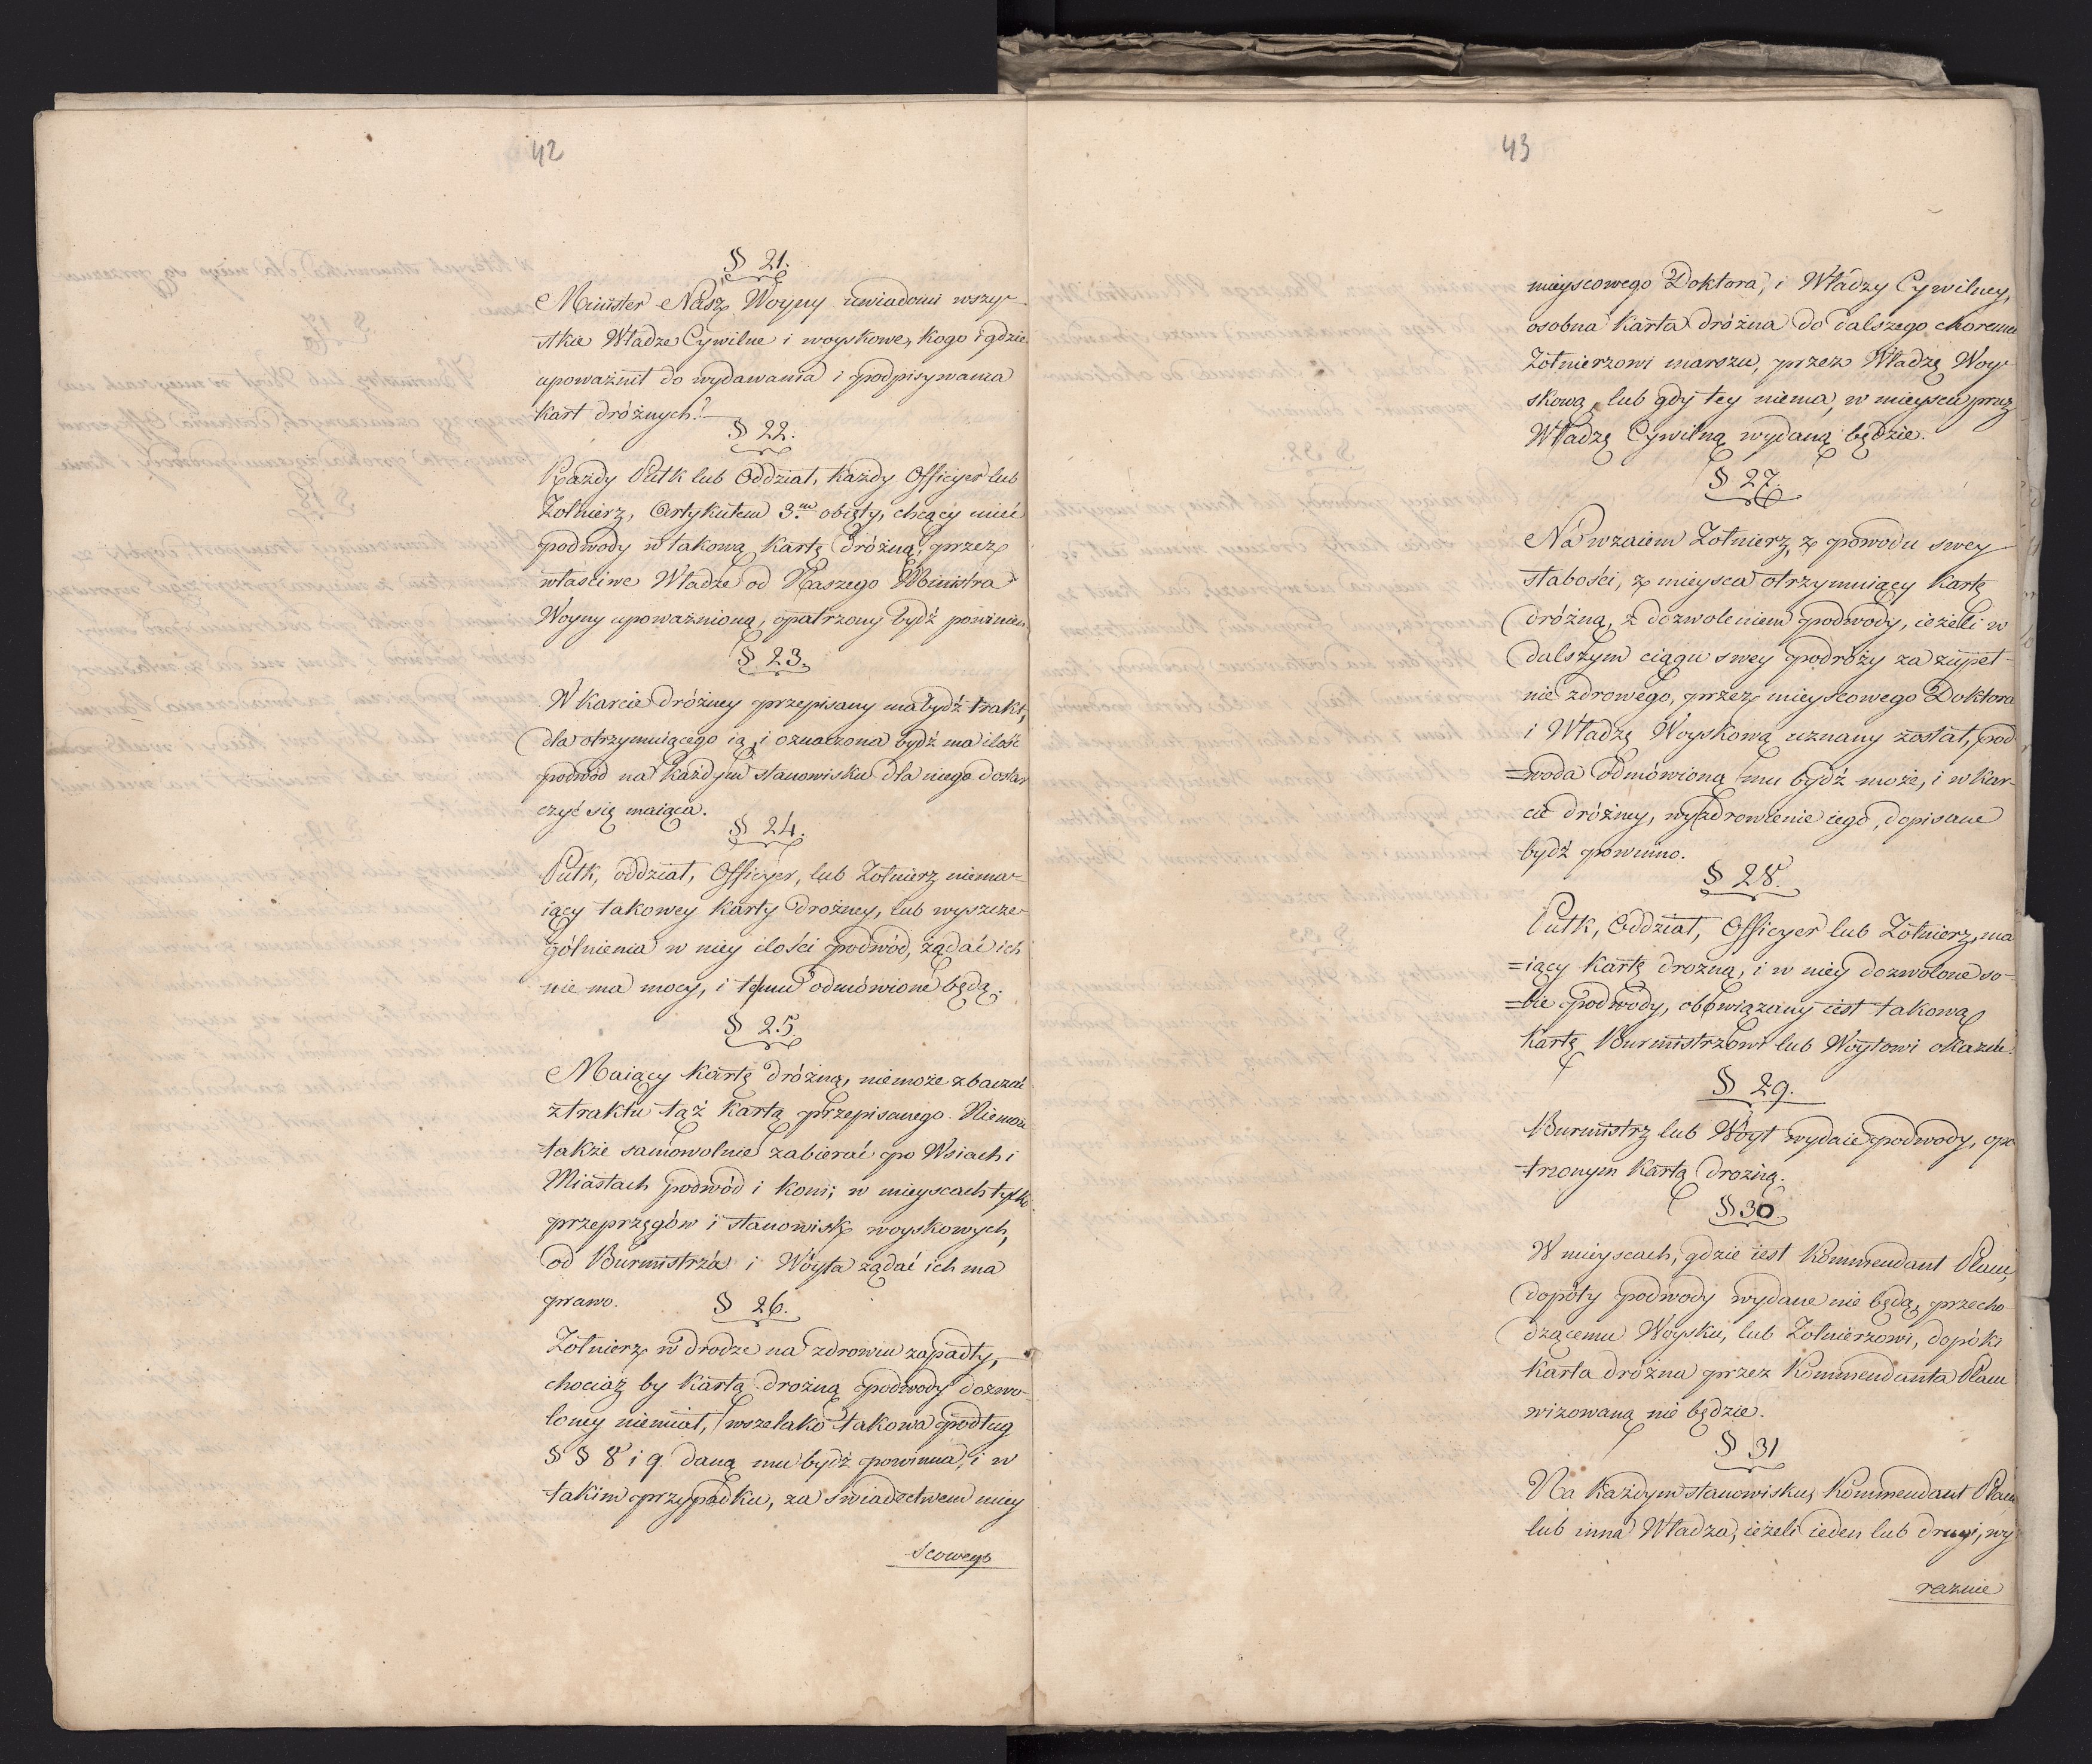 42
§ 21.
Minister Nasz Woyny uwiadomi wszy-
stkie Władze Cywilne i woyskowe, kogo i gdzie
upoważnił do wydawania i podpisywania
kart dróżnych?
§ 22.
Każdy Pułk lub Oddział, każdy Officyer lub
Żołnierz, Artykułem 3.m obięty, chcący mieć
podwody w takową kartę dróżną, przez
właściwe Władze od Naszego Ministra
Woyny upoważnioną, opatrzony bydź powinien
§ 23.
W karcie dróżney przepisany ma bydź trakt,
dla otrzymuiącego ią, i oznaczona bydź ma ilość
podwód na każdym stanowisku dla niego dostar
czyć się maiąca.
§ 24.
Pułk, oddział, Officyer, lub Żołnierz niema-
iący takowey karty drożney, lub wyszcze-
gólnienia w niey ilości podwód, żądać ich
nie ma mocy, i temu odmówione będą.
§ 25.
Maiący kartę dróżną, niemoże zbaczać
z traktu tąż kartą przepisanego. Niemoże
także samowolnie zabierać po Wsiach i
Miastach podwód i koni; w mieyscach tylko
przeprzęgów i stanowisk woyskowych,
od Burmistrza i Wóyta żądać ich ma
prawo.
§ 26.
Żołnierz w drodze na zdrowiu zapadły,
chociaż by kartą drożną podwody dozwo-
loney niemiał, wszelako takowa podług
§ § 8 i 9 daną mu bydź powinna, i w
takim przypadku, za świadectwem miey
scowego
43
mieyscowego Doktora, i Władzy Cywilney,
osobna karta dróżna do dalszego choremu
Żołnierzowi marszu, przez Władzę Woy-
skową, lub gdy tey niema, w mieyscu przez
Władzę Cywilną wydaną będzie.
§ 27.
Nawzaiem Żołnierz, z powodu swey
słabości, z mieysca otrzymuiący kartę
dróżną, z dozwoleniem podwody, ieżeli w
dalszym ciągu swey podróży za zupeł-
nie zdrowego, przez mieyscowego Doktora
i Władzę Woyskową uznany został, pod
=woda odmówioną mu bydź może, i w kar-
cie dróżney, wyzdrowienie iego, dopisane
bydź powinno.
§ 28.
Pułk, Oddział, Officyer lub Żołnierz, ma
=iący kartę drożną, i w niey dozwolone so-
=bie podwody, obowiązany iest takową
kartę Burmistrzowi lub Woytowi okazać.
§ 29.
Burmistrz lub Wóyt wydaie podwody, opa
trzonym kartą drożną.
§ 30
W mieyscach, gdzie iest Kommendant Placu,
dopóty podwody wydane nie będą, przecho
dzącemu Woysku, lub Żołnierzowi, dopóki
karta dróżna przez Kommendanta Placu
wizowaną nie będzie.
§ 31
Na każdym stanowisku, Kommendant Placu
lub inna Władza, ieżeli ieden lub drugi, wy
raznie